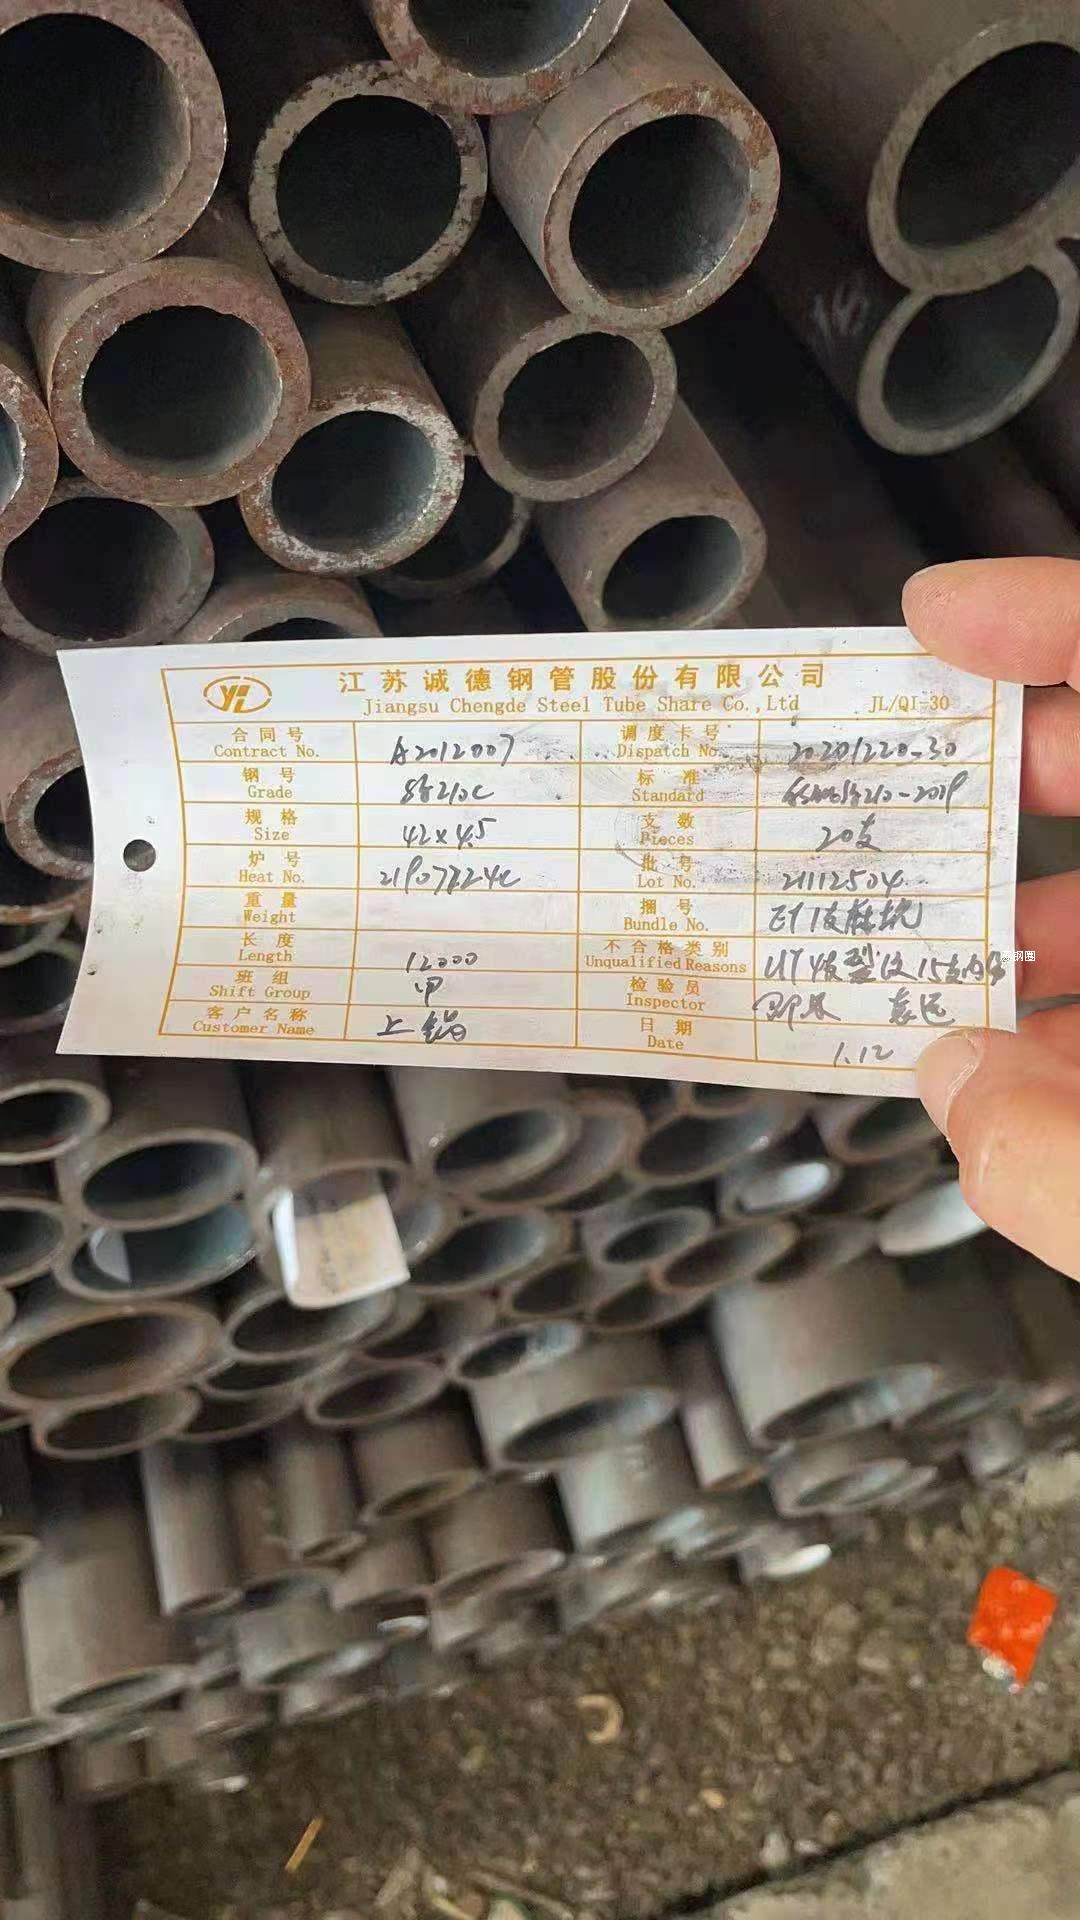 YL
江苏诚德钢管股份有限公司
Jiangsu Chengde Steel Tube Share Co.,Ltd JL/QI-30
合同号 Contract No. A2012007 调度卡号 Dispatch No. 20201220-30
钢号 Grade 标准 Standard
规格 Size 42×4.5 支数 Pieces 20支
炉号 Heat No. 批号 Lot No. 21112504
重量 Weight 捆号 Bundle No. ET1支
长度 Length 12000 不合格类别 Unqualified Reasons UT
班组 Shift Group 甲 检验员 Inspector
客户名称 Customer Name 上锅 日期 Date 1.12
钢圈